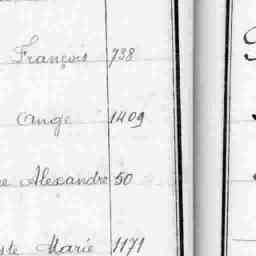 François 738
Ange 1409
re Alexandre 50
ste Marie 1171